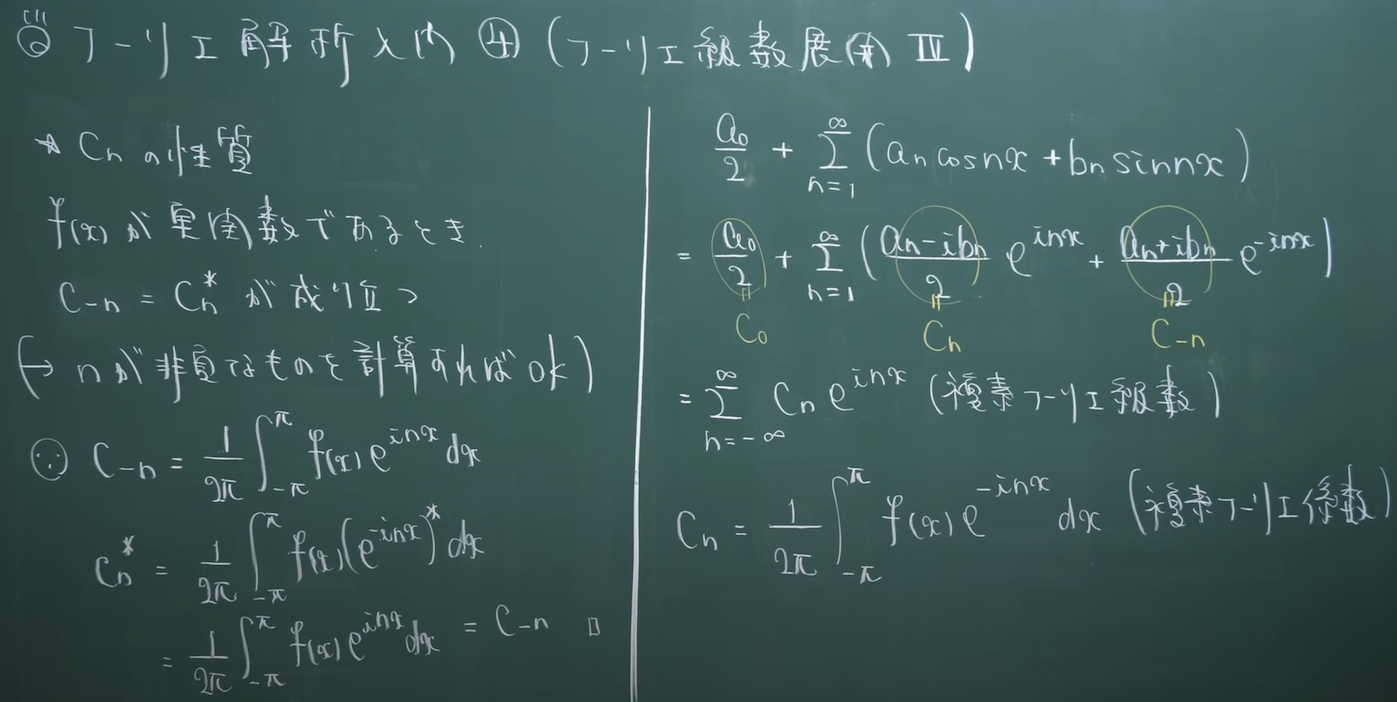 フーリエ解析入門④(フーリエ級数展開Ⅳ)
★ Cnの性質
f(x)が実関数であるとき.
C-n = Cn* が成り立つ
(→ nが非負なものを計算すればok)
∵ C-n = 1/2π ∫_{-π}^{π} f(x) e^{inx} dx
Cn* = 1/2π ∫_{-π}^{π} f(x) (e^{-inx})* dx
= 1/2π ∫_{-π}^{π} f(x) e^{inx} dx = C-n □
a0/2 + Σ_{n=1}^{∞} (an cosnx + bn sinnx)
= a0/2 + Σ_{n=1}^{∞} ((an-ibn)/2 e^{inx} + (an+ibn)/2 e^{-inx})
C0 Cn C-n
= Σ_{n=-∞}^{∞} Cn e^{inx} (複素フーリエ級数)
Cn = 1/2π ∫_{-π}^{π} f(x) e^{-inx} dx (複素フーリエ係数)